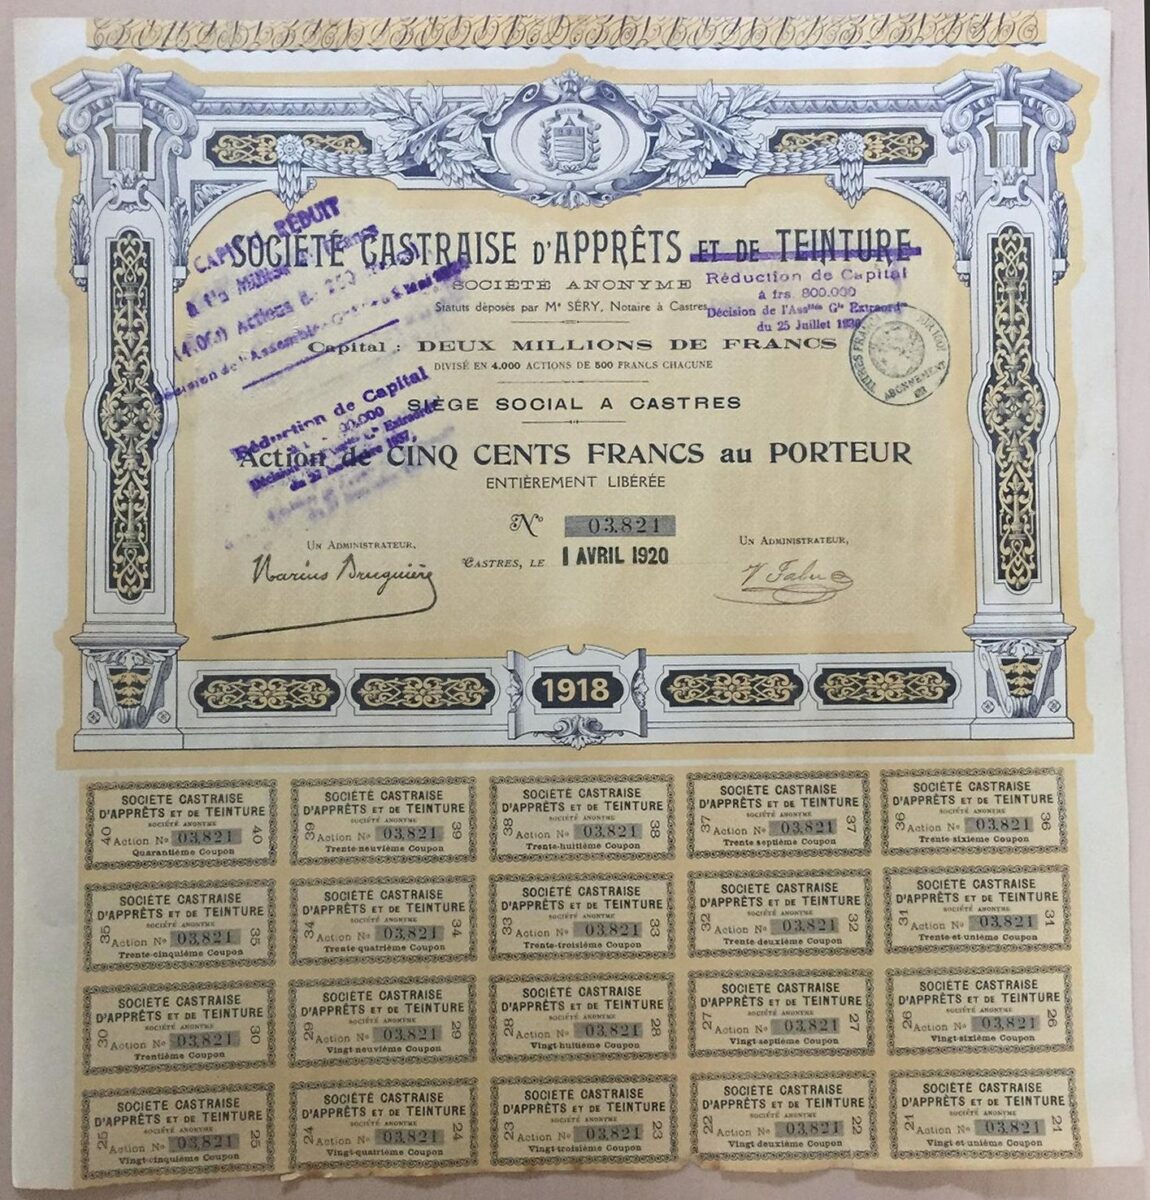 CAPITAL RÉDUIT
SOCIÉTÉ CASTRAISE D'APPRÊTS ET DE TEINTURE
SOCIÉTÉ ANONYME
Réduction de Capital
à frs. 800.000
Statuts déposés par Me SÉRY, Notaire à Castres
Décision de l'Assblée Gle Extraordre
du 25 Juillet
Capital : DEUX MILLIONS DE FRANCS
DIVISÉ EN 4.000 ACTIONS DE 500 FRANCS CHACUNE
TITRES
ABONNEMENT
Réduction de Capital
SIÈGE SOCIAL A CASTRES
Action de CINQ CENTS FRANCS au PORTEUR
ENTIÈREMENT LIBÉRÉE
No 03.821
UN ADMINISTRATEUR,
CASTRES, LE 1 AVRIL 1920
UN ADMINISTRATEUR,
Marius Bruguière
1918
SOCIÉTÉ CASTRAISE
D'APPRÊTS ET DE TEINTURE
SOCIÉTÉ ANONYME
40 Action No 03,821 40
Quarantième Coupon
SOCIÉTÉ CASTRAISE
D'APPRÊTS ET DE TEINTURE
SOCIÉTÉ ANONYME
39 Action No 03,821 39
Trente-neuvième Coupon
SOCIÉTÉ CASTRAISE
D'APPRÊTS ET DE TEINTURE
SOCIÉTÉ ANONYME
38 Action No 03,821 38
Trente-huitième Coupon
SOCIÉTÉ CASTRAISE
D'APPRÊTS ET DE TEINTURE
SOCIÉTÉ ANONYME
37 Action No 03,821 37
Trente septième Coupon
SOCIÉTÉ CASTRAISE
D'APPRÊTS ET DE TEINTURE
SOCIÉTÉ ANONYME
36 Action No 03,821 36
Trente-sixième Coupon
SOCIÉTÉ CASTRAISE
D'APPRÊTS ET DE TEINTURE
SOCIÉTÉ ANONYME
35 Action No 03,821 35
Trente-cinquième Coupon
SOCIÉTÉ CASTRAISE
D'APPRÊTS ET DE TEINTURE
SOCIÉTÉ ANONYME
34 Action No 03,821 34
Trente quatrième Coupon
SOCIÉTÉ CASTRAISE
D'APPRÊTS ET DE TEINTURE
SOCIÉTÉ ANONYME
33 Action No 03,821 33
Trente-troisième Coupon
SOCIÉTÉ CASTRAISE
D'APPRÊTS ET DE TEINTURE
SOCIÉTÉ ANONYME
32 Action No 03,821 32
Trente deuxième Coupon
SOCIÉTÉ CASTRAISE
D'APPRÊTS ET DE TEINTURE
SOCIÉTÉ ANONYME
31 Action No 03,821 31
Trente et unième Coupon
SOCIÉTÉ CASTRAISE
D'APPRÊTS ET DE TEINTURE
SOCIÉTÉ ANONYME
30 Action No 03,821 30
Trentième Coupon
SOCIÉTÉ CASTRAISE
D'APPRÊTS ET DE TEINTURE
SOCIÉTÉ ANONYME
29 Action No 03,821 29
Vingt-neuvième Coupon
SOCIÉTÉ CASTRAISE
D'APPRÊTS ET DE TEINTURE
SOCIÉTÉ ANONYME
28 Action No 03,821 28
Vingt-huitième Coupon
SOCIÉTÉ CASTRAISE
D'APPRÊTS ET DE TEINTURE
SOCIÉTÉ ANONYME
27 Action No 03,821 27
Vingt septième Coupon
SOCIÉTÉ CASTRAISE
D'APPRÊTS ET DE TEINTURE
SOCIÉTÉ ANONYME
26 Action No 03,821 26
Vingt-sixième Coupon
SOCIÉTÉ CASTRAISE
D'APPRÊTS ET DE TEINTURE
SOCIÉTÉ ANONYME
25 Action No 03,821 25
Vingt-cinquième Coupon
SOCIÉTÉ CASTRAISE
D'APPRÊTS ET DE TEINTURE
SOCIÉTÉ ANONYME
24 Action No 03,821 24
Vingt-quatrième Coupon
SOCIÉTÉ CASTRAISE
D'APPRÊTS ET DE TEINTURE
SOCIÉTÉ ANONYME
23 Action No 03,821 23
Vingt troisième Coupon
SOCIÉTÉ CASTRAISE
D'APPRÊTS ET DE TEINTURE
SOCIÉTÉ ANONYME
22 Action No 03,821 22
Vingt deuxième Coupon
SOCIÉTÉ CASTRAISE
D'APPRÊTS ET DE TEINTURE
SOCIÉTÉ ANONYME
21 Action No 03,821 21
Vingt et unième Coupon